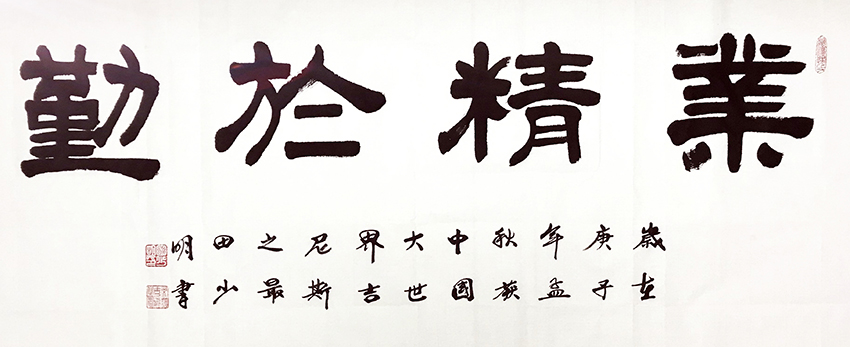 業精於勤
歲在
庚子
年孟
秋
中國
大世
界吉
尼斯
之最
田少
明書